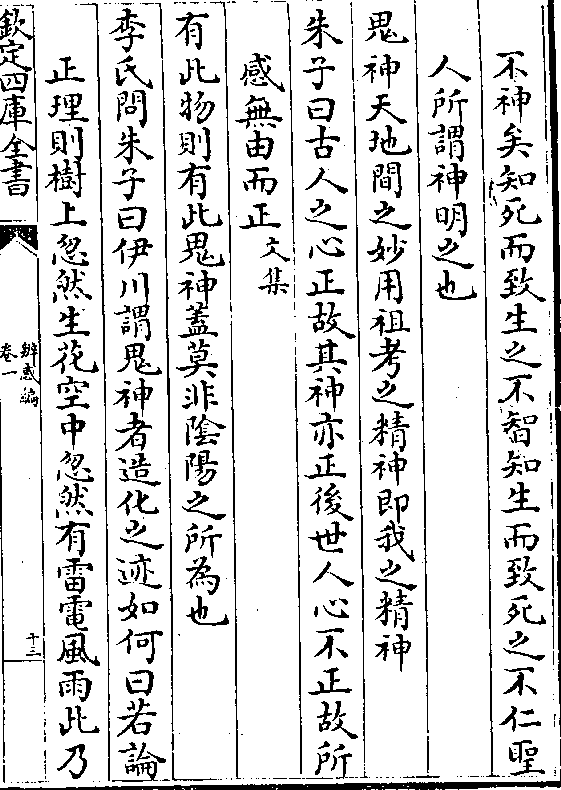 不神矣知死而致生之不智知生而致死之不仁聖
人所謂神明之也
鬼神天地間之妙用祖考之精神即我之精神
朱子曰古人之心正故其神亦正後世人心不正故所
感無由而正文集
有此物則有此鬼神蓋莫非陰陽之所為也
李氏問朱子曰伊川謂鬼神者造化之迹如何曰若論
正理則樹上忽然生花空中忽然有雷電風雨此乃
欽定四庫全書
辨惑編
卷一
十三